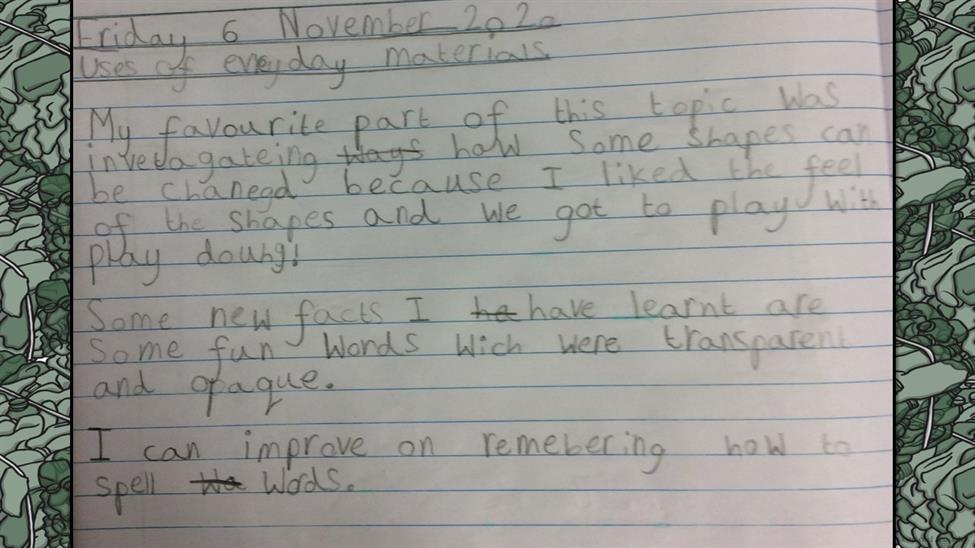 Friday 6 November 2020
Uses of everyday materials
My favourite part of this topic was
invetagateing ways how some shapes can
be chanegd because I liked the feel
of the shapes and we got to play with
play doung!
Some new facts I ha have learnt are
some fun words wich were transparent
and opaque.
I can improve on remebering how to
spell wo wods.